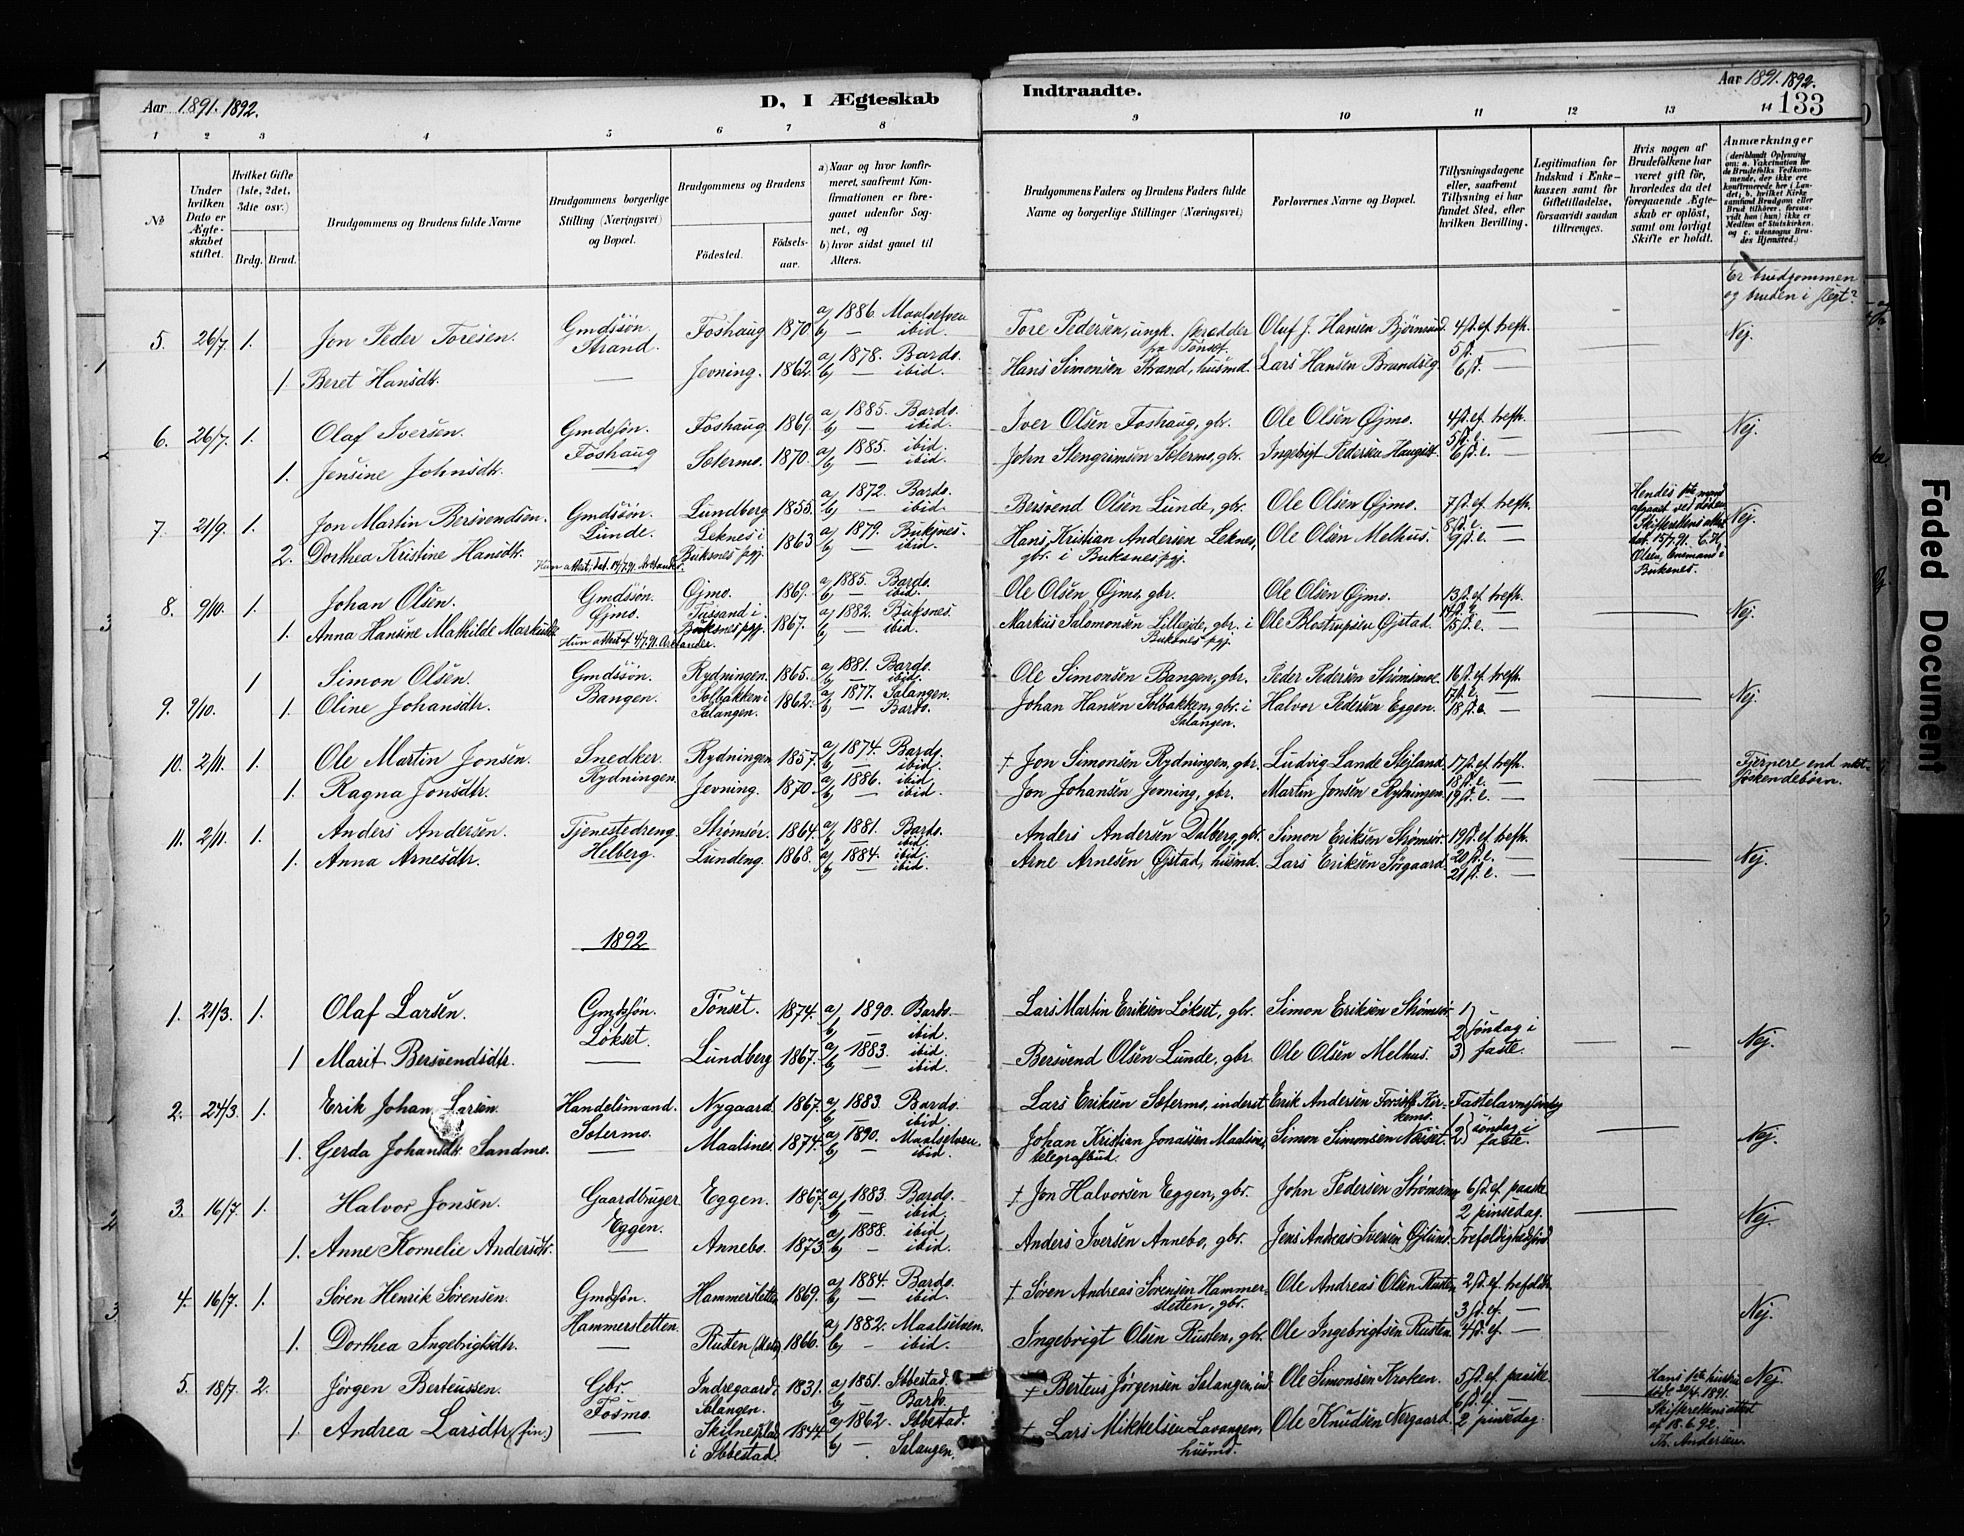 Aar 1891. 1892.
D, I Ægteskab Indtraadte.
Aar 1891. 1892.
133
1 2 3 4 5 6 7 8 9 10 11 12 13 14
№
Under hvilken Dato er Ægteskabet stiftet.
Hvilket Gifte (1ste, 2det, 3die osv.)
Brdg. Brud.
Brudgommens og Brudens fulde Navne
Brudgommens borgerlige Stilling (Næringsvei) og Bopæl.
Brudgommens og Brudens
Födested.
Födselsaar.
a) Naar og hvor konfirmeret, saafremt Konfirmationen er foregaaet udenfor Sognet, og
b) hvor sidst gaaet til Alters.
Brudgommens Faders og Brudens Faders fulde Navne og borgerlige Stillinger (Næringsvei)
Forlovernes Navne og Bopæl.
Tillysningsdagene eller, saafremt Tillysning ei har fundet Sted, efter hvilken Bevilling.
Legitimation for Indskud i Enkekassen samt for Giftetilladelse, forsaavidt saadan tiltrænges.
Hvis nogen af Brudefolkene har været gift før, hvorledes da det foregaaende Ægteskab er oplöst, samt om lovligt Skifte er holdt.
Anmærkninger
(deriblandt Oplysning om: a. Vakcination for de Brudefolks Vedkommende, der ikke ere konfirmerede her i Landet, b. hvilket Kirkesamfund Brudgom eller Brud tilhörer, forsaavidt han (hun) ikke er Medlem af Statskirken, og c. udensogns Brudes Hjemsted.)
Er brudgommen og bruden i slegt?
5. 26/7 1. Jon Peder Toresen. Gmdssön. Strand. Foshaug 1870. a) 1886. Maalselven b) — ibid. Tore Pedersen, ungk. skrædder fra Tönset. Oluf J. Hansen Björnsund. 4 s. ef. trefh. Nej.
1 Beret Hansdtr. — Jevning. 1862. a) 1878. Bardo. b) — ibid. Hans Simonsen Strand, husmd. Lars Hansen Brandvig. 5 s. — 6 s. —
6. 26/7. 1. Olaf Iversen. Gmdssön. Foshaug Foshaug. 1869. a) 1885. Bardo. b) — ibid. Iver Olsen Foshaug, gbr. Ole Olsen Øjmo. 4 s. ef. trefh. Nej.
1. Jensine Johnsdtr. Sætermo. 1870. a) 1885. ibid. b) — ibid. John Stengrimsen Sætermo, gbr. Ingebrigt Pedersen 5 s. e. — 6 s. e. —
7. 21/9. 1. Jon Martin Bersvendsen. Gmdssön. Lunde. Lundberg 1855. a) 1872. Bardo. b) — ibid. Bersvend Olsen Lunde, gbr. Ole Olsen Øjmo. 7 s. ef. trefh. Nej.
2. Dorthea Kristine Hansdtr. — Leknes i Buksnes pgj. 1863 a) 1879. Buksnes. b) — ibid. Hans Kristian Andersen Leknes, gbr. i Buksnes pgj. Ole Olsen Melhus. 8 s. e. — 9 s. e. —
Hendes 1ste mand afgaaet ved døden. Skifterettens attest dat. 15/7. 91. C. H. Olsen, Buksnes.
8. 9/10. 1. Johan Olsen. Gmdssön. Øjmo. Øjmo. 1869. a) 1885. Bardo. b) — ibid. Ole Olsen Øjmo, gbr. Ole Olsen Øjmo. 13 s. ef. trefh. Nej.
1. Anna Hansine Mathilde Markusdtr. i Buksnes pgj. 1867. a) 1882. Buksnes. b) — ibid. Markus Salomonsen gbr. i Buksnes pgj. Ole Blostrupsen Øjstad. 14 s. e. — 15 s. e. —
1 Simon Olsen. Gmdssön. Bangen. Rydningen. 1865. a) 1881. Bardo. b) — ibid. Ole Simonsen Bangen, gbr. Peder Pedersen Strømsmoe. 16 s. ef. trefh.
9. 9/10. 1. Oline Johansdtr. Solbakken i Salangen. 1862. a) 1877. Salangen. b) — Bardo. Johan Hansen Solbakken, gbr. i Salangen. Halvor Pedersen Eggen. 17 s. e. — 18 s. e. — Nej.
10. 2/11. 1. Ole Martin Jonsen. Snedker. Rydningen. Rydningen 1857. a) 1874. Bardo. b) — ibid. † Jon Simonsen Rydningen, gbr. Ludvig Lande Stejland. 17 s. ef. trefh. Fjernere end næstsøskendebørn.
1. Ragna Jonsdtr. Jevning. 1870. a) 1886. ibid. b) — ibid. Jon Johansen Jevning, gbr. Martin Jonsen Rydningen. 18 s. e. — 19 s. e. —
11. 2/11. 1. Anders Andersen. Tjenestedreng. Helberg. Strømsør. 1864. a) 1881. Bardo. b) — ibid. Anders Andersen Dalberg, gbr. Simon Eriksen Strømsør. 19 s. ef. trefh.
1. Anna Arnesdtr. Lundeng. 1868. a) 1884. ibid. b) — ibid. Arne Arnesen Øjstad, husmd. Lars Eriksen Sørgaard. 20 s. e. — 21 s. e. — Nej.
1892
1. 21/3. 1. Olaf Larsen. Gmdssön. Løkset. Tönset. 1874. a) 1890. Bardo. b) — ibid. Lars Martin Eriksen Løkset, gbr. Simon Eriksen Strømsør. 1) 2) 3) søndag i faste. Nej.
1 Marit Bersvendsdtr. — Lundberg 1867. a) 1883. ibid. b) — ibid. Bersvend Olsen Lunde, gbr. Ole Olsen Melhus.
2. 24/3. 1. Erik Johan Larsen. Handelsmand. Sætermo. Nygaard 1867. a) 1883. Bardo. b) — ibid. Lars Eriksen Sætermo, inderst Erik Andersen Kirkemo. Fastelavnssöndag
1. Gerda Johansdtr. Sandmo. — Maalsnes 1874. a) 1890. Maalselven. b) — ibid. Johan Kristian Jonassen Maalsnes, telegrafbud. Simon Simonsen Neset. 1) 2) söndag i faste. Nej.
3. 16/7. 1. Halvor Jonsen. Gaardbruger Eggen. Eggen. 1867. a) 1883. Bardo. b) — ibid. † Jon Halvorsen Eggen, gbr. John Pedersen Strømsmo 6 s. ef. paaske 2 pinsedag. Nej.
1. Anne Kornelie Andersdtr. — Annebo. 1873. a) 1888. ibid. b) — ibid. Anders Iversen Annebo, gbr. Jens Andreas Iversen Øjlund. Trefoldighedssönd.
4. 16/7. 1. Søren Henrik Sørensen. Gmdssön. Hammersletten. Hammersletten 1869. a) 1884. Bardo. b) — ibid. † Søren Andreas Sørensen Hammersletten, gbr. Ole Andreas Olsen Rusten. 2 s. ef. trefoldh. 3 s. ef. — Nej.
1. Dorthea Ingebrigtsdtr. — Rusten 1866. a) 1882. Maalselven. b) — ibid. Ingebrigt Olsen Rusten, gbr. Ole Ingebrigtsen Rusten. 4 s. ef. —
5. 18/7. 2. Jørgen Berteussen. Gbr. Fosmo. Indregaard, Salangen. 1831. a) 1851. Ibbestad. b) Bardo. † Berteus Jørgensen Salangen, ind. Ole Simonsen Kroken. 5 s. ef. paaske. 6 s. ef. — Nej.
1. Andrea Larsdtr. (fin.) — i Ibbestad. 1844. a) 1862. Ibbestad. b) — Salangen. † Lars Mikkelsen Lavangen, husmd. Ole Knudsen Nergaard. 2 pinsedag.
Hans 1ste hustru døde 20/4. 1891. Skifterettens attest af 18.6.92. Th. Andersen.
Faded Document